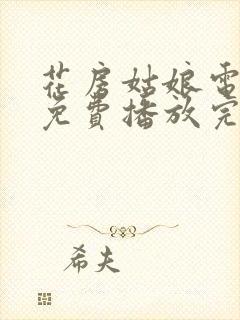 花房姑娘電
免費播放完
希夫